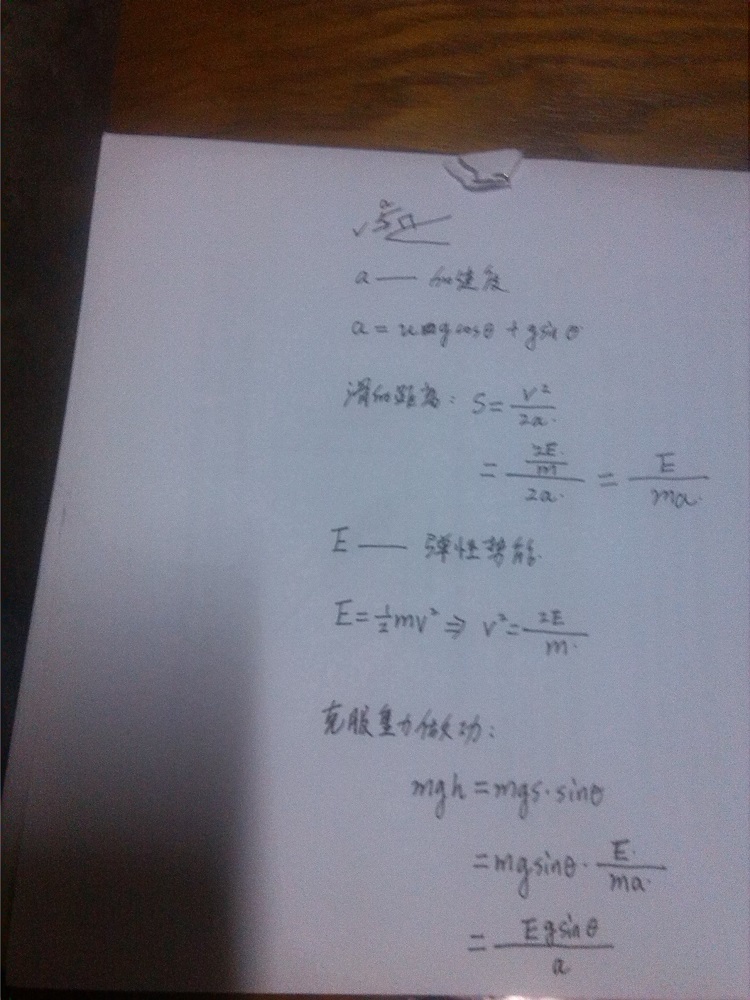 a
v
a — 加速度
a = umgcosθ + gsinθ
滑行距离: S = v²/2a
= (2E/m)/2a = E/ma
E — 弹性势能
E = ½mv² ⇒ v² = 2E/m
克服重力做功:
mgh = mgs·sinθ
= mgsinθ · E/ma
= Egsinθ/a